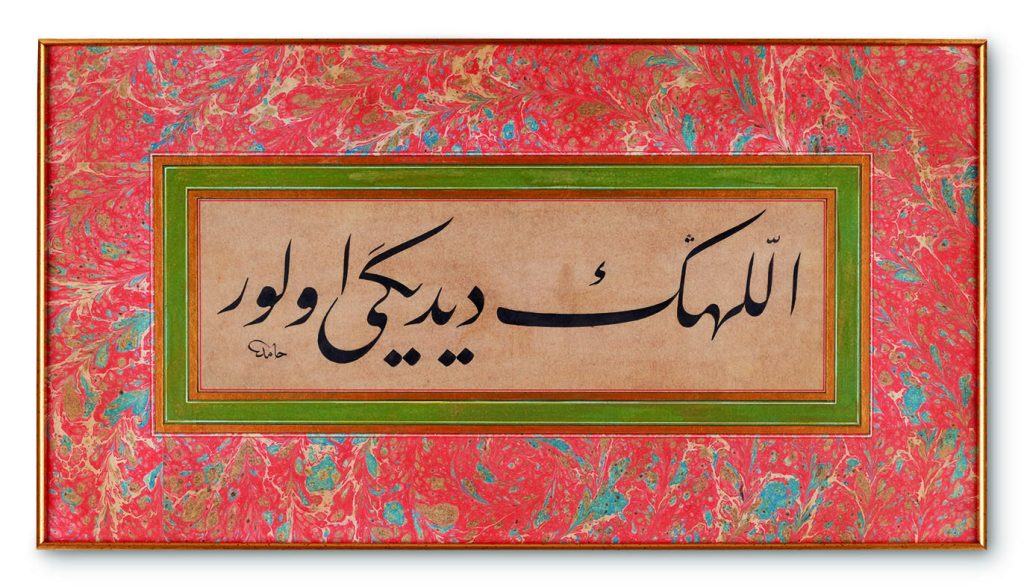 اللّٰهڭ ديديگی اولور
حامد